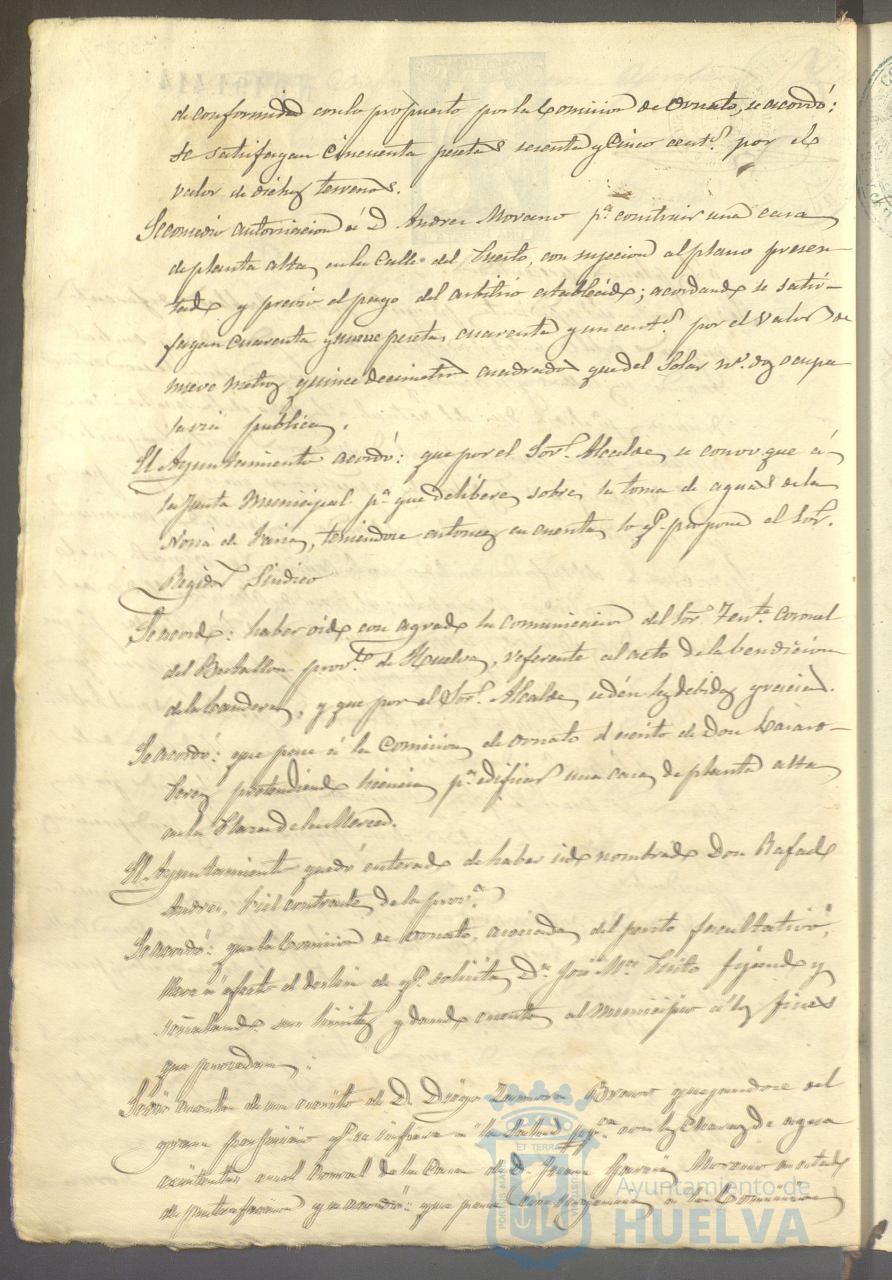 de conformidad con lo propuesto por la Comision de Ornato, se acordó:
se satisfagan Cincuenta pesetas sesenta y Cinco cent.s por el
valor de dichos terrenos.
Se concedio autorizacion á D. Andres Morano p.a construir una casa
de planta alta, en la Calle del Puerto, con sujecion al plano presen-
tado y previo el pago del arbitrio establecido; acordando se satis-
fagan cuarenta y nueve pesetas, cuarenta y un cent.s por el valor de
nueve metros quince decimetros cuadrados que del Solar n.o dos ocupa
la via publica.
El Ayuntamiento acordó: que por el Sor. Alcalde, se convoque á
la Junta Municipal p.a que delibere sobre la toma de aguas de la
Noria de, teniendose entonces en cuenta lo q.e propone el Sor.
Regidor Sindico
Se acordó: haber oido con agrado la comunicacion del Sor. Ten.te Coronel
del Batallon prov.l de Huelva, referente al acto de la bendicion
de la bandera, y que por el Sor. Alcalde, se dén las debidas gracias.
Se acordó: que pase á la Comision de Ornato el escrito de Don Lazaro
Perez pretendiendo licencia p.a edificar una casa de planta alta
en la Plaza de la Merced.
El Ayuntamiento quedó enterado de haber sido nombrado Don Rafael
Andres, fiel contraste de la prov.a
Se acordó: que la Comision de Ornato, asociada del perito facultativo,
lleve á efecto el deslinde q.e solicita D.n José M.a fijando y
señalando sus limites y dando cuenta al Municipio á los fines
que procedan.
Se dió cuenta de un escrito de D. Diego Zamora Bravo quejandose del
grave perjuicio q.e se infiere á la Salud pp.ca con las Charcas de agua
existentes en el Corral de la Casa de D. Juan Garcia Morano
y se acordó: que pase á la Comision
ET TERRAE
Ayuntamiento de
HUELVA